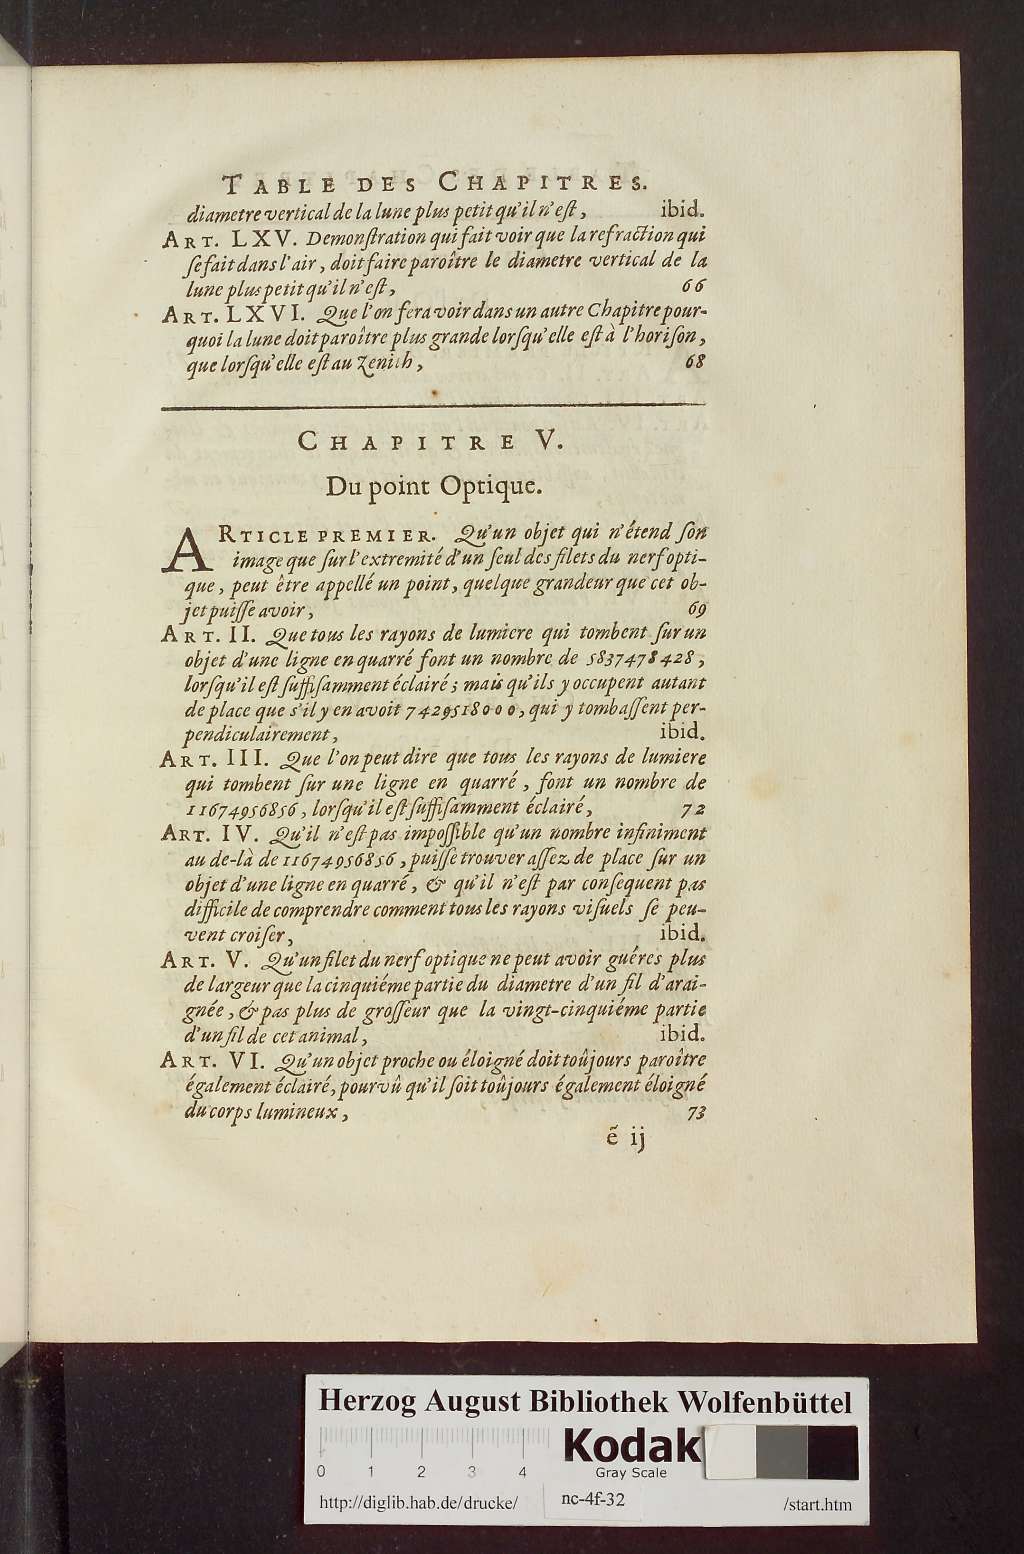 TABLE DES CHAPITRES.
diametre vertical de la lune plus petit qu'il n'eſt, ibid.
ART. LXV. Demonſtration qui fait voir que la refraction qui
ſe fait dans l'air, doit faire paroître le diametre vertical de la
lune plus petit qu'il n'eſt, 66
ART. LXVI. Que l'on fera voir dans un autre Chapitre pour-
quoi la lune doit paroître plus grande lorſqu'elle eſt à l'horiſon,
que lorſqu'elle eſt au Zenith, 68
CHAPITRE V.
Du point Optique.
ARTICLE PREMIER. Qu'un objet qui n'étend ſon
image que ſur l'extremité d'un ſeul des filets du nerf opti-
que, peut être appellé un point, quelque grandeur que cet ob-
jet puiſſe avoir, 69
ART. II. Que tous les rayons de lumiere qui tombent ſur un
objet d'une ligne en quarré font un nombre de 5837478428,
lorſqu'il eſt ſuffiſamment éclairé; mais qu'ils y occupent autant
de place que s'il y en avoit 7429518000, qui y tombaſſent per-
pendiculairement, ibid.
ART. III. Que l'on peut dire que tous les rayons de lumiere
qui tombent ſur une ligne en quarré, font un nombre de
11674956856, lorſqu'il eſt ſuffiſamment éclairé, 72
ART. IV. Qu'il n'eſt pas impoſſible qu'un nombre infiniment
au de-là de 11674956856, puiſſe trouver aſſez de place ſur un
objet d'une ligne en quarré, & qu'il n'eſt par conſequent pas
difficile de comprendre comment tous les rayons viſuels ſe peu-
vent croiſer, ibid.
ART. V. Qu'un filet du nerf optique ne peut avoir guéres plus
de largeur que la cinquiéme partie du diametre d'un fil d'arai-
gnée, & pas plus de groſſeur que la vingt-cinquiéme partie
d'un fil de cet animal, ibid.
ART. VI. Qu'un objet proche ou éloigné doit toûjours paroître
également éclairé, pourvû qu'il ſoit toûjours également éloigné
du corps lumineux, 73
ẽ ij
Herzog August Bibliothek Wolfenbüttel
Kodak
0 1 2 3 4 Gray Scale
http://diglib.hab.de/drucke/ nc-4f-32 /start.htm